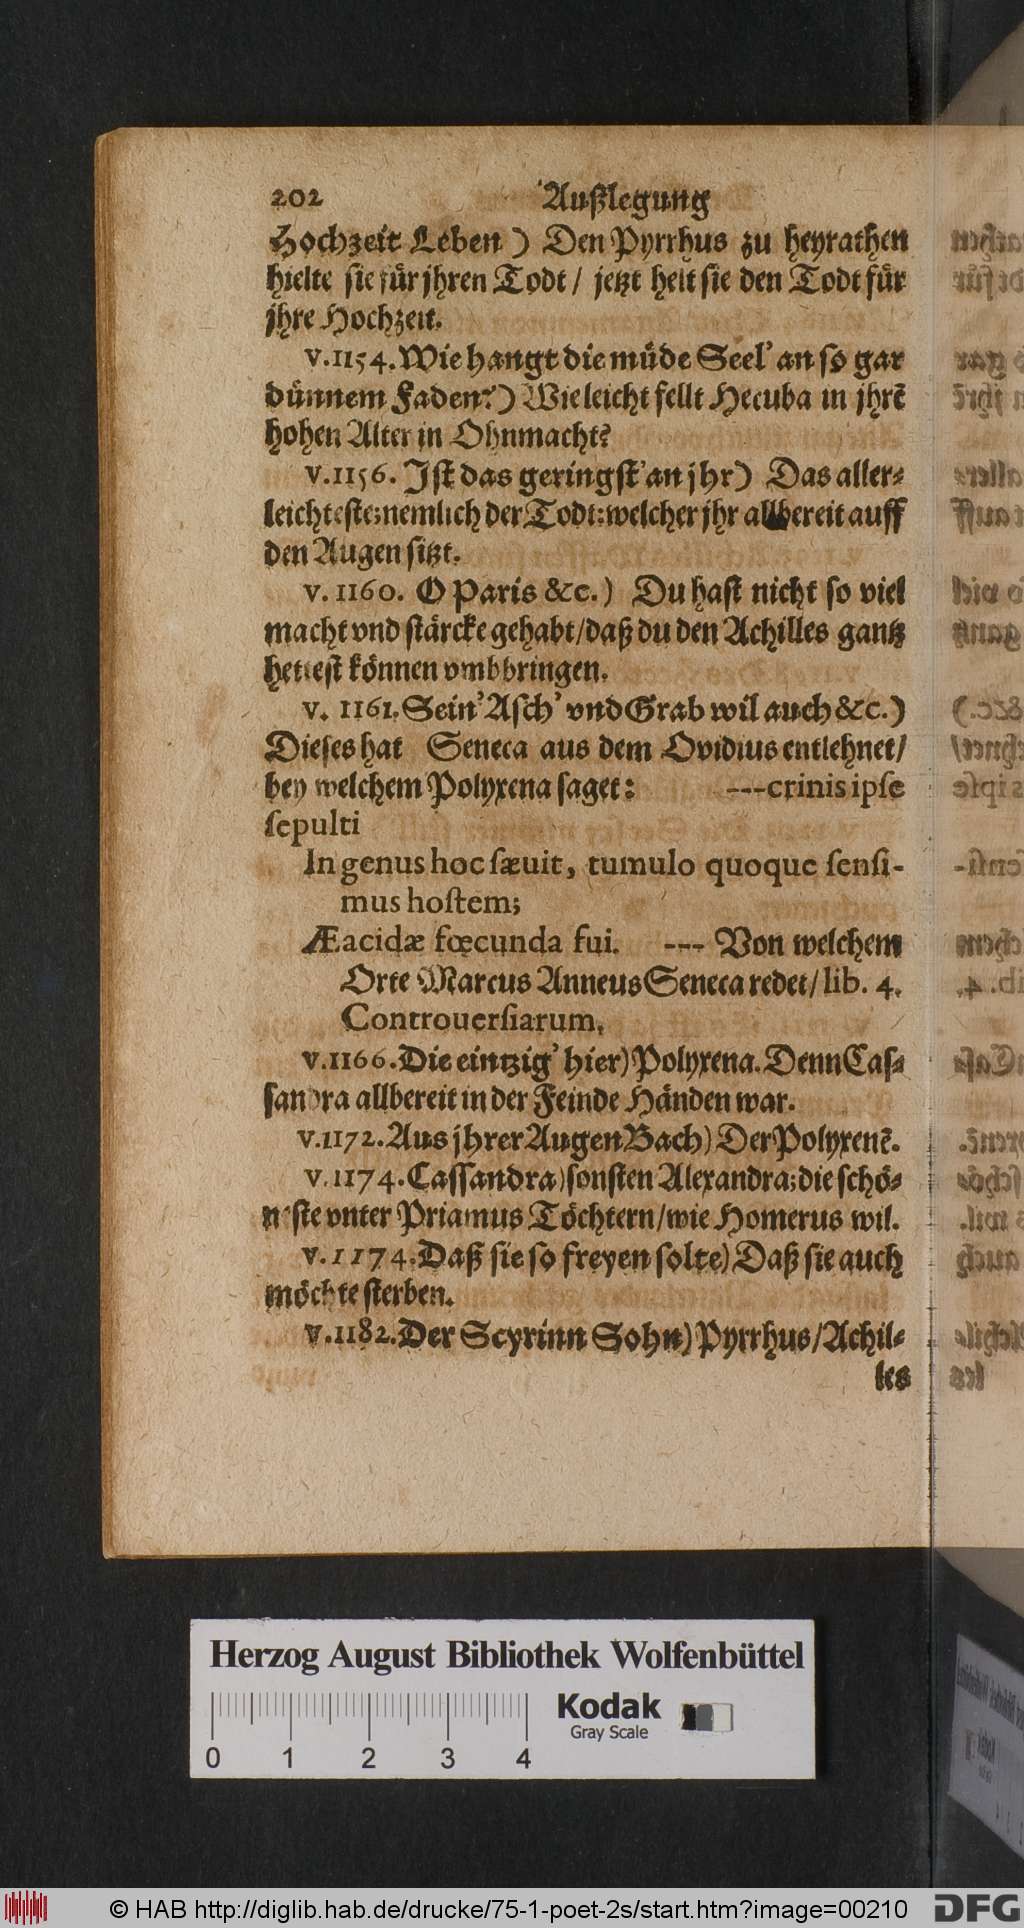 202 Außlegung
Hochzeit Leben ) Den Pyrrhus zu heyrathen
hielte sie für jhren Todt / jetzt helt sie den Todt für
jhre Hochzeit.
v.1154. Wie hangt die müde Seel' an so gar
dünnem Faden?) Wie leicht fellt Hecuba in jhrē
hohen Alter in Ohnmacht?
v.1156. Jst das geringst' an jhr) Das aller-
leichteste; nemlich der Todt: welcher jhr allbereit auff
den Augen sitzt.
v. 1160. O Paris &c.) Du hast nicht so viel
macht vnd stärcke gehabt / daß du den Achilles gantz
hettest können vmbbringen.
v. 1161. Sein' Asch' vnd Grab wil auch &c.)
Dieses hat Seneca aus dem Ovidius entlehnet /
bey welchem Polyxena saget: ---crinis ipſe
ſepulti
In genus hoc ſævit, tumulo quoque ſenſi-
mus hoſtem;
Æacidæ fœcunda fui. --- Von welchem
Orte Marcus Anneus Seneca redet / lib. 4.
Controuerſiarum.
v.1166. Die eintzig' hier) Polyxena. Denn Cas-
sandra allbereit in der Feinde Händen war.
v.1172. Aus jhrer Augen Bach) Der Polyxenē.
v.1174. Cassandra) sonsten Alexandra; die schö-
neste vnter Priamus Töchtern / wie Homerus wil.
v.1174. Daß sie so freyen solte) Daß sie auch
möchte sterben.
v.1182. Der Scyrinn Sohn) Pyrrhus / Achil-
les
Herzog August Bibliothek Wolfenbüttel
Kodak
Gray Scale
0 1 2 3 4
© HAB http://diglib.hab.de/drucke/75-1-poet-2s/start.htm?image=00210
DFG